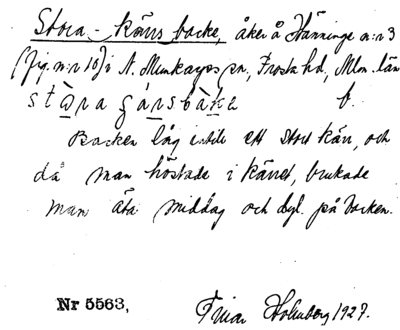 Stora-kärrs backe, åker å Hänninge n:r 3
(fig. n:r 10) i N. Munkarps sn, Frosta hd, Mlm. län
b.
Backen låg intill ett stort kärr, och
då man höstade i kärret, brukade
man äta middag och dyl. på backen.
Nr 5563, Finar Holmberg 1927.